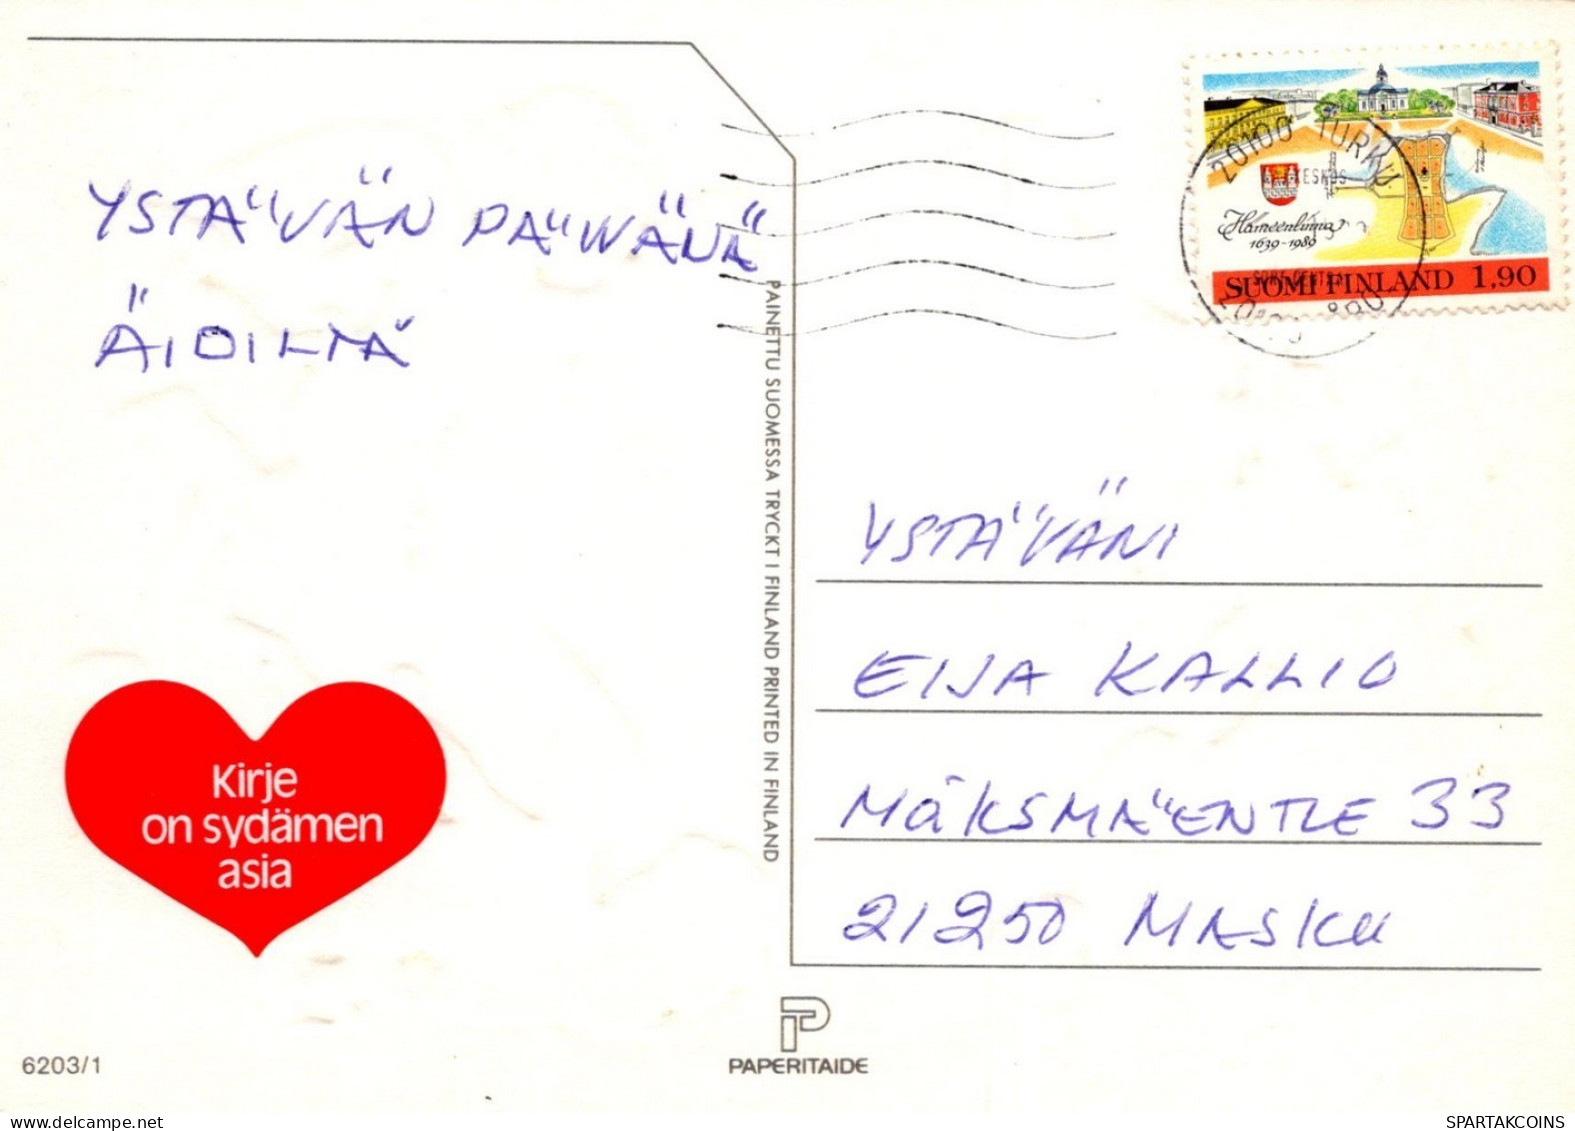 YSTÄVÄN PÄIVÄNÄ
ÄIDILTÄ
20100 TURKU
KESKUS
Hämeenlinna
1639-1989
SUOMI FINLAND 1,90
PAINETTU SUOMESSA TRYCKT I FINLAND PRINTED IN FINLAND
YSTÄVÄNI
EIJA KALLIO
33
21250 MASKU
Kirje
on sydämen
asia
6203/1
PAPERITAIDE
SPARTAKCOINS
www.delcampe.net